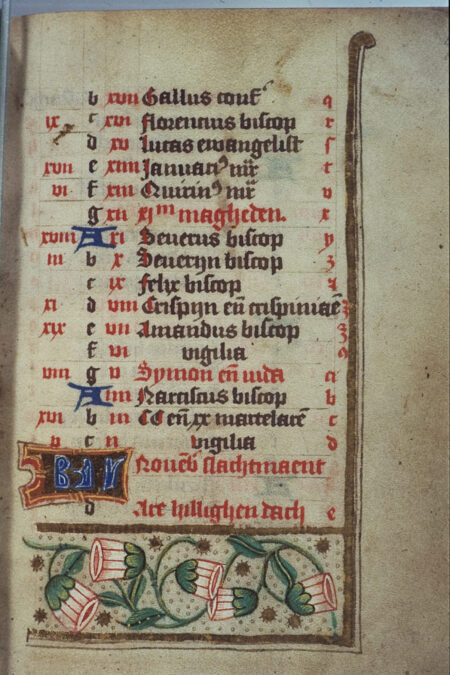 b xvii Gallus conf q
ix c xvi florencius biscop r
d xv lucas ewangelist s
xvii e xiiii Januari9 mr t
vi f xiii Quirin9 mr v
g xii xim magheden. x
xviii A xi Seuerus biscop y
iii b x Seueryn biscop z
c ix felix biscop
xi d viii Crispijn en crispiniae
xix e vii Amandus biscop
f vi vigilia
viii g v Symon en iuda a
A iiii Narciscus biscop b
xvi b iii CC en xx martelare c
v c ii vigilia d
Nouemb slachtmaent
d Alre hillighen dach e